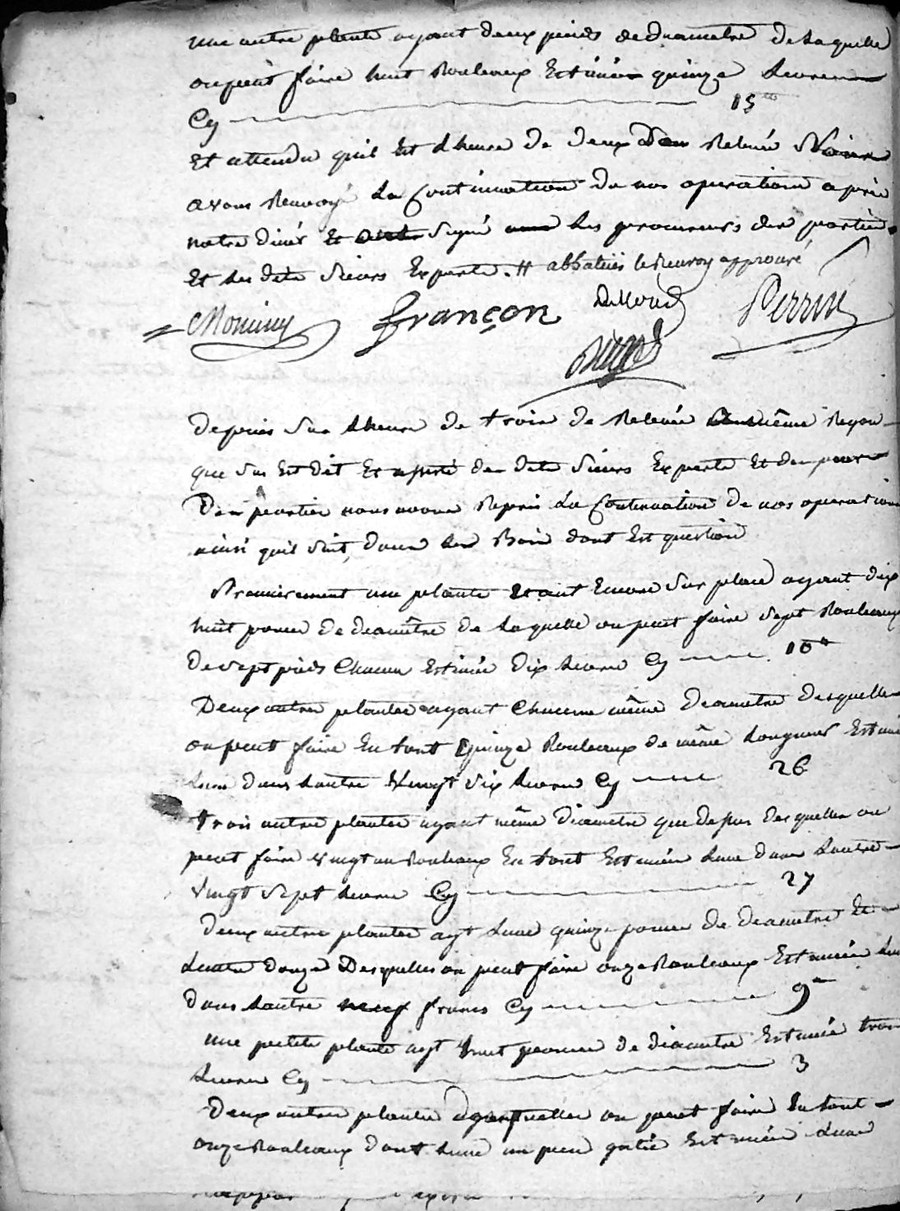 une autre plante ayant deux pieds de diametre de laquelle
on peut faire huit Rouleaux Estimée quinze Livres
Cy 15
Et attendu quil Est Lheure de deux De Relevée Nous
avons Renvoyé La Continuation de nos operations après
notre diner Et signé Les procureurs des parties
Et Les dits Sieurs Experts. # abbatues le Renvoy approuvé
françon Perrin
depuis Sur Lheure de trois de Relevée même
que Sus Est dit Et des dits Sieurs Experts Et des
Des parties nous avons Repris La Continuation de nos operations
ainsi quil Suit, dans Les Bois dont Est question
Premierement une plante Etant Encore Sur place ayant dix
huit pouces de diamêtre de Laquelle on peut faire Sept Rouleaux
de sept pieds Chacun Estimée dix Livres Cy 10
Deux autres plantes ayant Chacune même diametre desquelles
on peut faire En tout quinze Rouleaux de même Longueur Estimées
Lune dans Lautre Vingt Six Livres Cy 26
trois autres plantes ayant même diametre que dessus desquelles on
peut faire vingt un Rouleaux En tout Estimées Lune dans Lautre
Vingt Sept Livres Cy 27
deux autres plantes ayt Lune quinze pouces de diametre Et
Lautre douze Desquelles on peut faire onze Rouleaux Estimées Lune
dans Lautre neuf francs Cy 9
une petite plante ayt huit pouces de diametre Estimée trois
Livres Cy 3
Deux autres plantes desquelles on peut faire En tout
onze Rouleaux dont Lune un peu gatée Estimées Lune